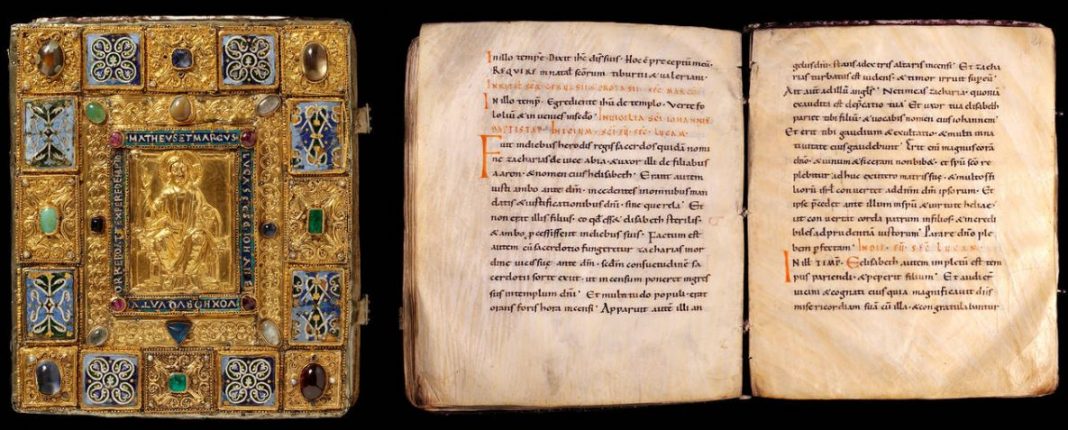 MATHEVS ET MARCVS
LVCAS
VOX HORV QVATV
In illo tempr. Dixit ihc discis suis. Hoc e preceptu meu.
REQVIRE in natal scorum tiburtii & valeriani.
In illo temp. Egredienti ihu de templo. Verte fo
loliu & in venies infedo. IN VIGILIA SCI IOHANNIS
BAPTISTAE.
Fuit indiebus herodis regis sacerdos quida nomi
ne zacharias de uice abia & uxor illi de filiabus
aaron. & nomen eius helisabeth. Erant autem
iusti ambo ante dm. incedentes inomnibus man
datis & iustificationibus dni. sine querela. Et
non erat illis filius. eo qd ess& elisabeth sterilis.
& ambo pcessissent indiebus suis. Factum est
autem cu sacerdotio fungeretur zacharias inor
dine uicis sue ante dm. sedm consuetudine sa
cerdotii sorte exiit. ut incensum poneret ingres
sus intemplum dni. Et multitudo populi erat
orans foris hora incensi. Apparuit aute illi an
gelus dni. stans adextris altaris incensi. Et zacha
rias turbatus est uidens. & timor irruit sup eu.
Ait aut ad illu angls. Ne timeas zacharia. quoniã
exaudita est depcatio tua. Et uxor tua elisabeth
pariet tibi filiu. & uocabis nomen eius iohannem.
Et erit tibi gaudium & exultatio. & multi inna
tiuitate eius gaudebunt. Erit eni magnus corã
dño. & uinum & siceram non bib&. et spu sco re
plebitur adhuc ex utero matris sue. & multos fili
orum isrl conuertet addnm dm ipsorum. Et
ipse pcedet ante illum inspu & uirtute heliae.
ut conuertat corda patrum infilios. & incredi
biles adprudentia iustorum. Parare dno ple
bem pfectam.
IN ILL TEMP. Elisabeth autem impletu est tem
pus pariendi. & peperit filium. Et audier
uicini & cognati eius quia magnificauit dñs
misericordiam sua cu illa. & congratulabuntur